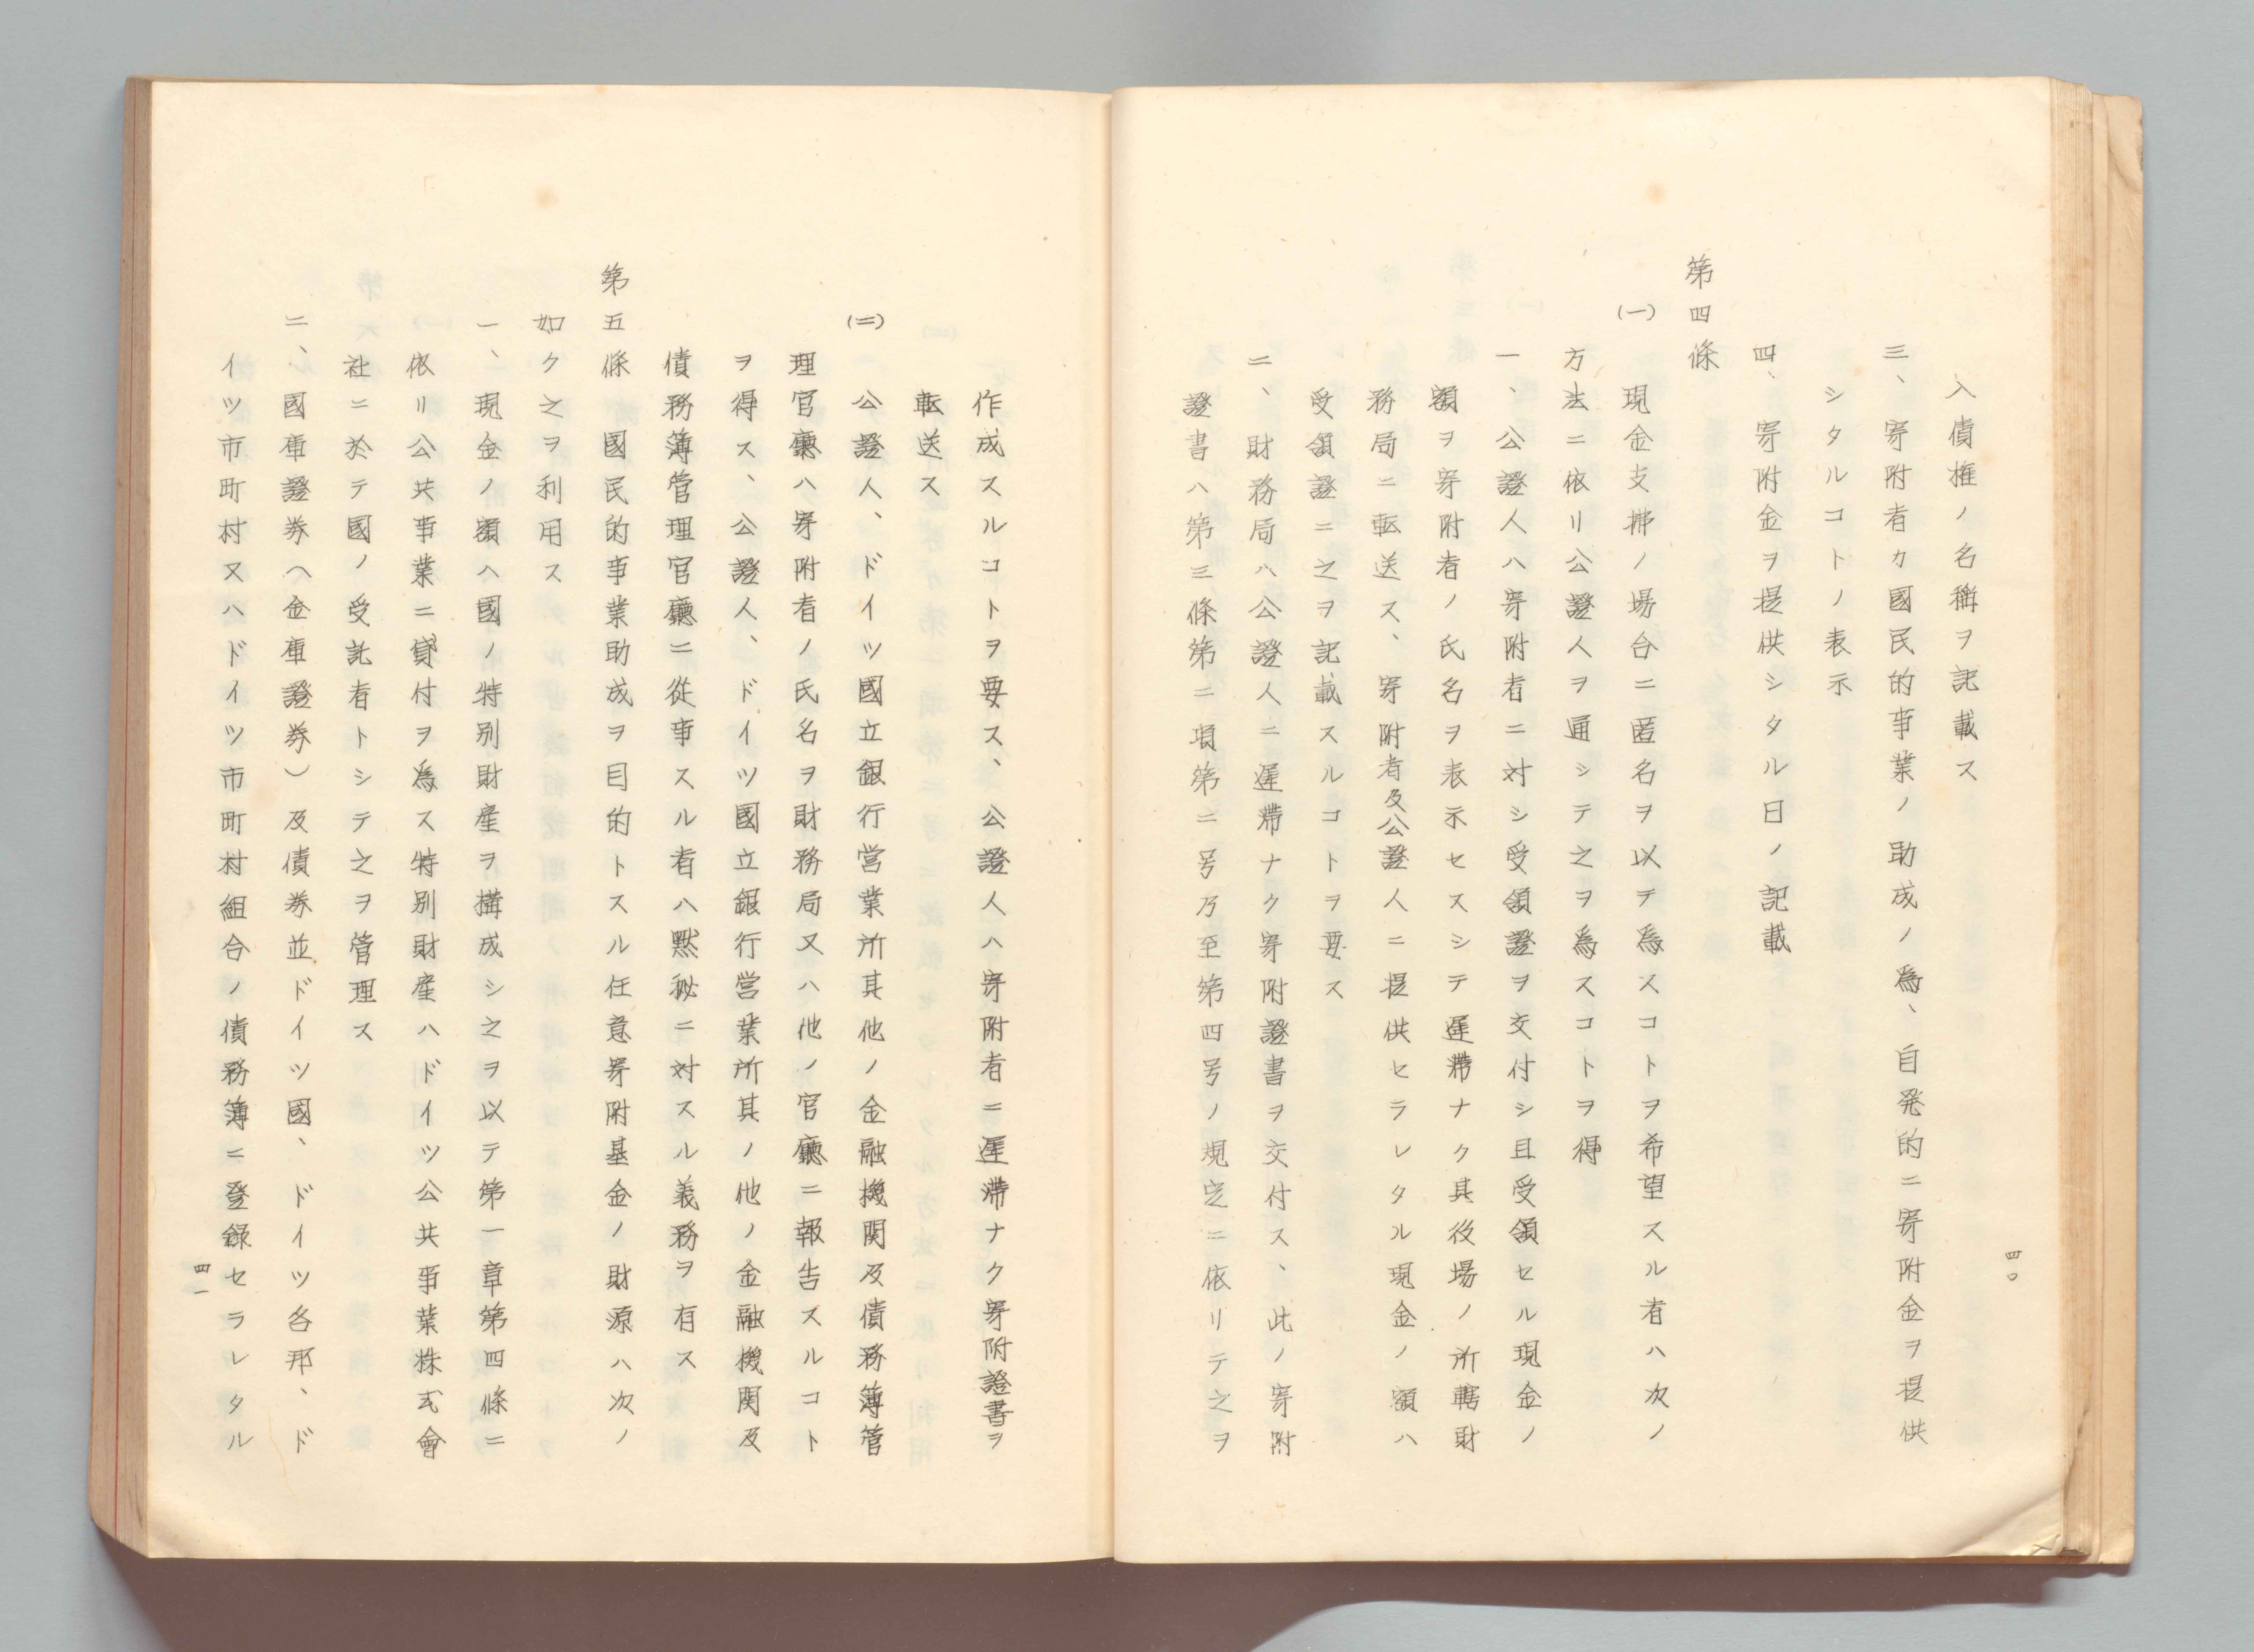 入債権ノ名稱ヲ記載ス
三、寄附者カ國民的事業ノ助成ノ為、自発的ニ寄附金ヲ提供
シタルコトノ表示
四、寄附金ヲ提供シタル日ノ記載
第四條
(一)現金支拂ノ場合ニ匿名ヲ以テ為スコトヲ希望スル者ハ次ノ
方法ニ依リ公證人ヲ通シテ之ヲ為スコトヲ得
一、公證人ハ寄附者ニ対シ受領證ヲ交付シ且受領セル現金ノ
額ヲ寄附者ノ氏名ヲ表示セスシテ遅滯ナク其後場ノ所轄財
務局ニ転送ス、寄附者及公證人ニ提供セラレタル現金ノ額ハ
受領證ニ之ヲ記載スルコトヲ要ス
二、財務局ハ公證人ニ遅滯ナク寄附證書ヲ交付ス、此ノ寄附
證書ハ第三條第二項第二号乃至第四号ノ規定ニ依リテ之ヲ
四〇
作成スルコトヲ要ス、公證人ハ寄附者ニ遅滯ナク寄附證書ヲ
転送ス
(二)公證人、ドイツ國立銀行営業所其他ノ金融機関及債務簿管
理官廳ハ寄附者ノ氏名ヲ財務局又ハ他ノ官廳ニ報告スルコト
ヲ得ス、公證人、ドイツ國立銀行営業所其ノ他ノ金融機関及
債務簿管理官廳ニ從事スル者ハ黙秘ニ対スル義務ヲ有ス
第五條 國民的事業助成ヲ目的トスル任意寄附基金ノ財源ハ次ノ
如ク之ヲ利用ス
一、現金ノ額ハ國ノ特別財産ヲ構成シ之ヲ以テ第一章第四條ニ
依リ公共事業ニ貸付ヲ為ス特別財産ハドイツ公共事業株式會
社ニ於テ國ノ受託者トシテ之ヲ管理ス
二、國庫證券(金庫證券)及債券並ドイツ國、ドイツ各邦、ド
イツ市町村又ハドイツ市町村組合ノ債務簿ニ登録セラレタル
四一